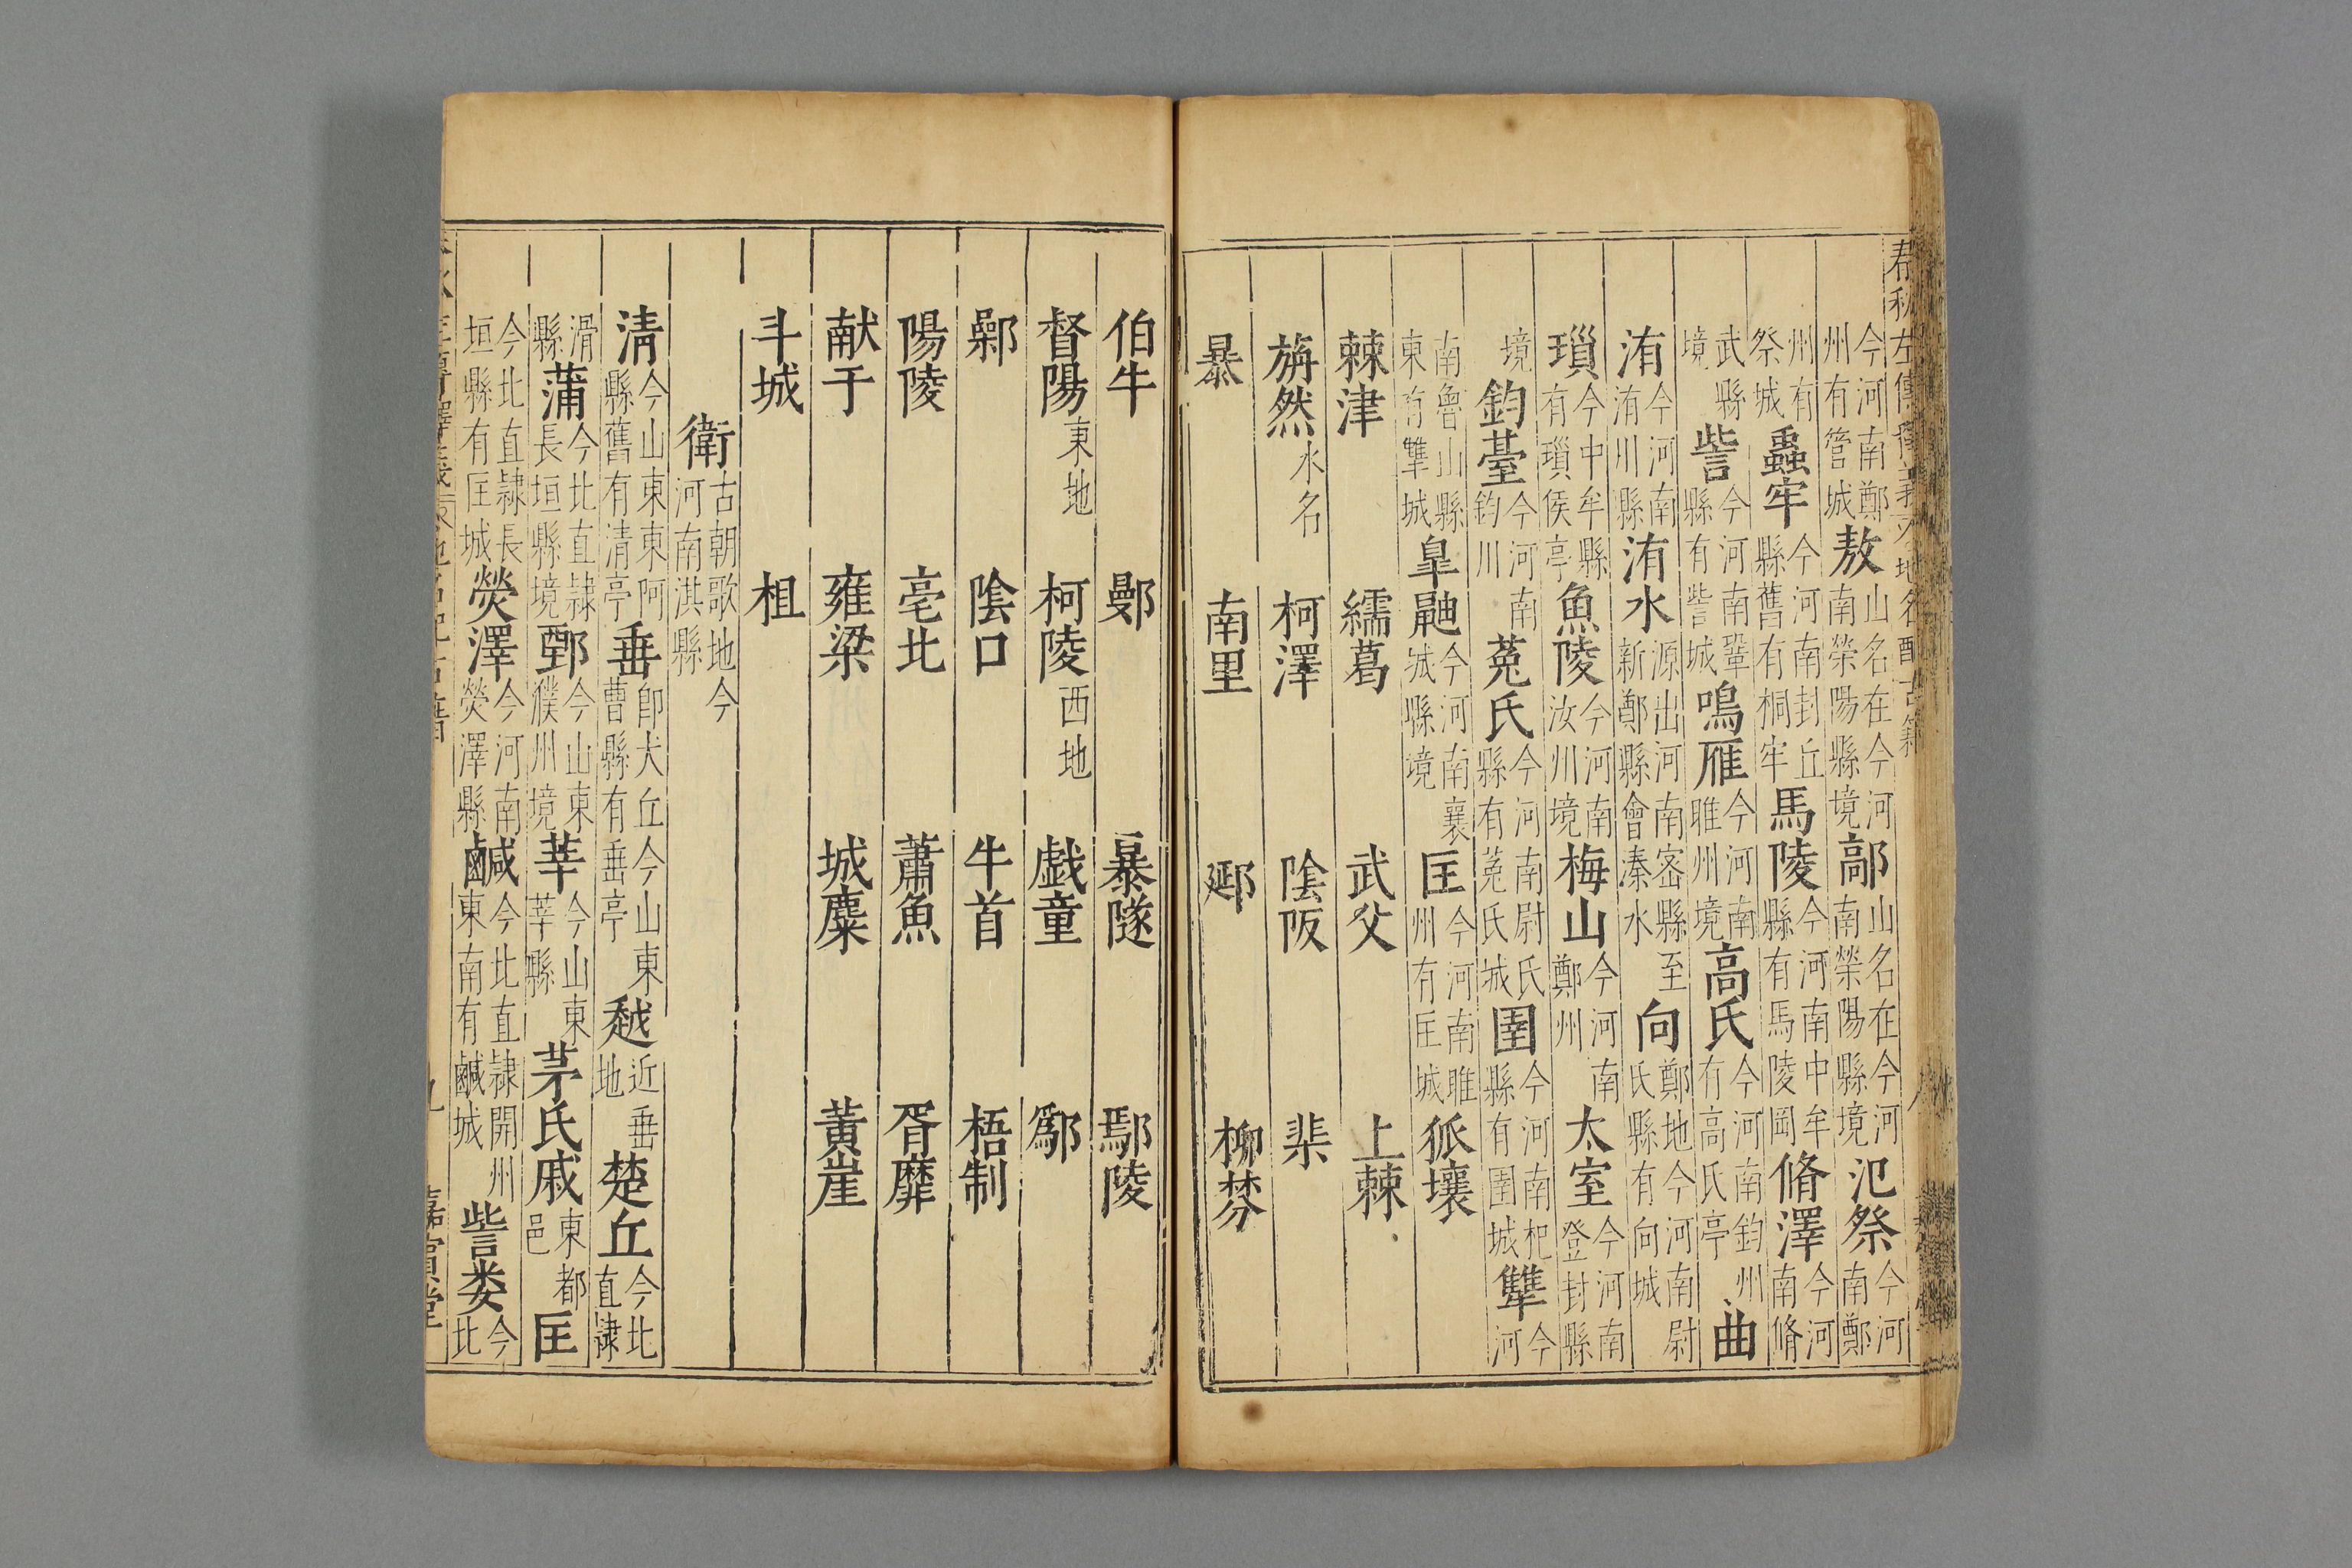 春秋左傳
地名配古籍
今河南鄭州有管城敖山名在今河南滎陽縣境鄗山名在今河南滎陽縣境氾祭今河南鄭
州有祭城蟲牢今河南封丘縣舊有桐牢馬陵今河南中牟縣有馬陵岡脩澤今河南脩
武縣境訾今河南鞏縣有訾城鳴雁今河南睢州境高氏今河南鈞州有高氏亭曲
洧今河南洧川縣洧水源出河南密縣至新鄭縣會溱水向鄭地今河南尉氏縣有向城
瑣今中牟縣有瑣侯亭魚陵今河南汝州境梅山今河南鄭州太室今河南登封縣
境鈞䑓今河南鈞川菟氏今河南尉氏縣有菟氏城圉今河南杞縣有圉城犨今河
南魯山縣東有犨城皐鼬今河南襄城縣境匡今河南睢州有匡城狐壤
棘津 繻葛 武父 上棘
旃然水名 柯澤 陰阪 棐
暴 南里 郔 柳棼
伯牛 鄤 暴隧 鄢陵
督陽東地 柯陵西地 戯童 鄬
鄵 陰口 牛首 梧制
陽陵 亳北 蕭魚 胥靡
献于 雍梁 城麇 黃崖
斗城 柤
衛古朝歌地今河南淇縣
清今山東東阿縣舊有清亭垂卽犬丘今山東曹縣有垂亭越近垂地楚丘今北直隷
滑縣蒲今北直隷長垣縣境鄄今山東濮州境莘今山東莘縣茅氏戚東都邑匡
今北直隷長垣縣有匡城熒澤今河南熒澤縣鹹今北直隷開州東南有鹹城訾娄今北
嘉賓堂